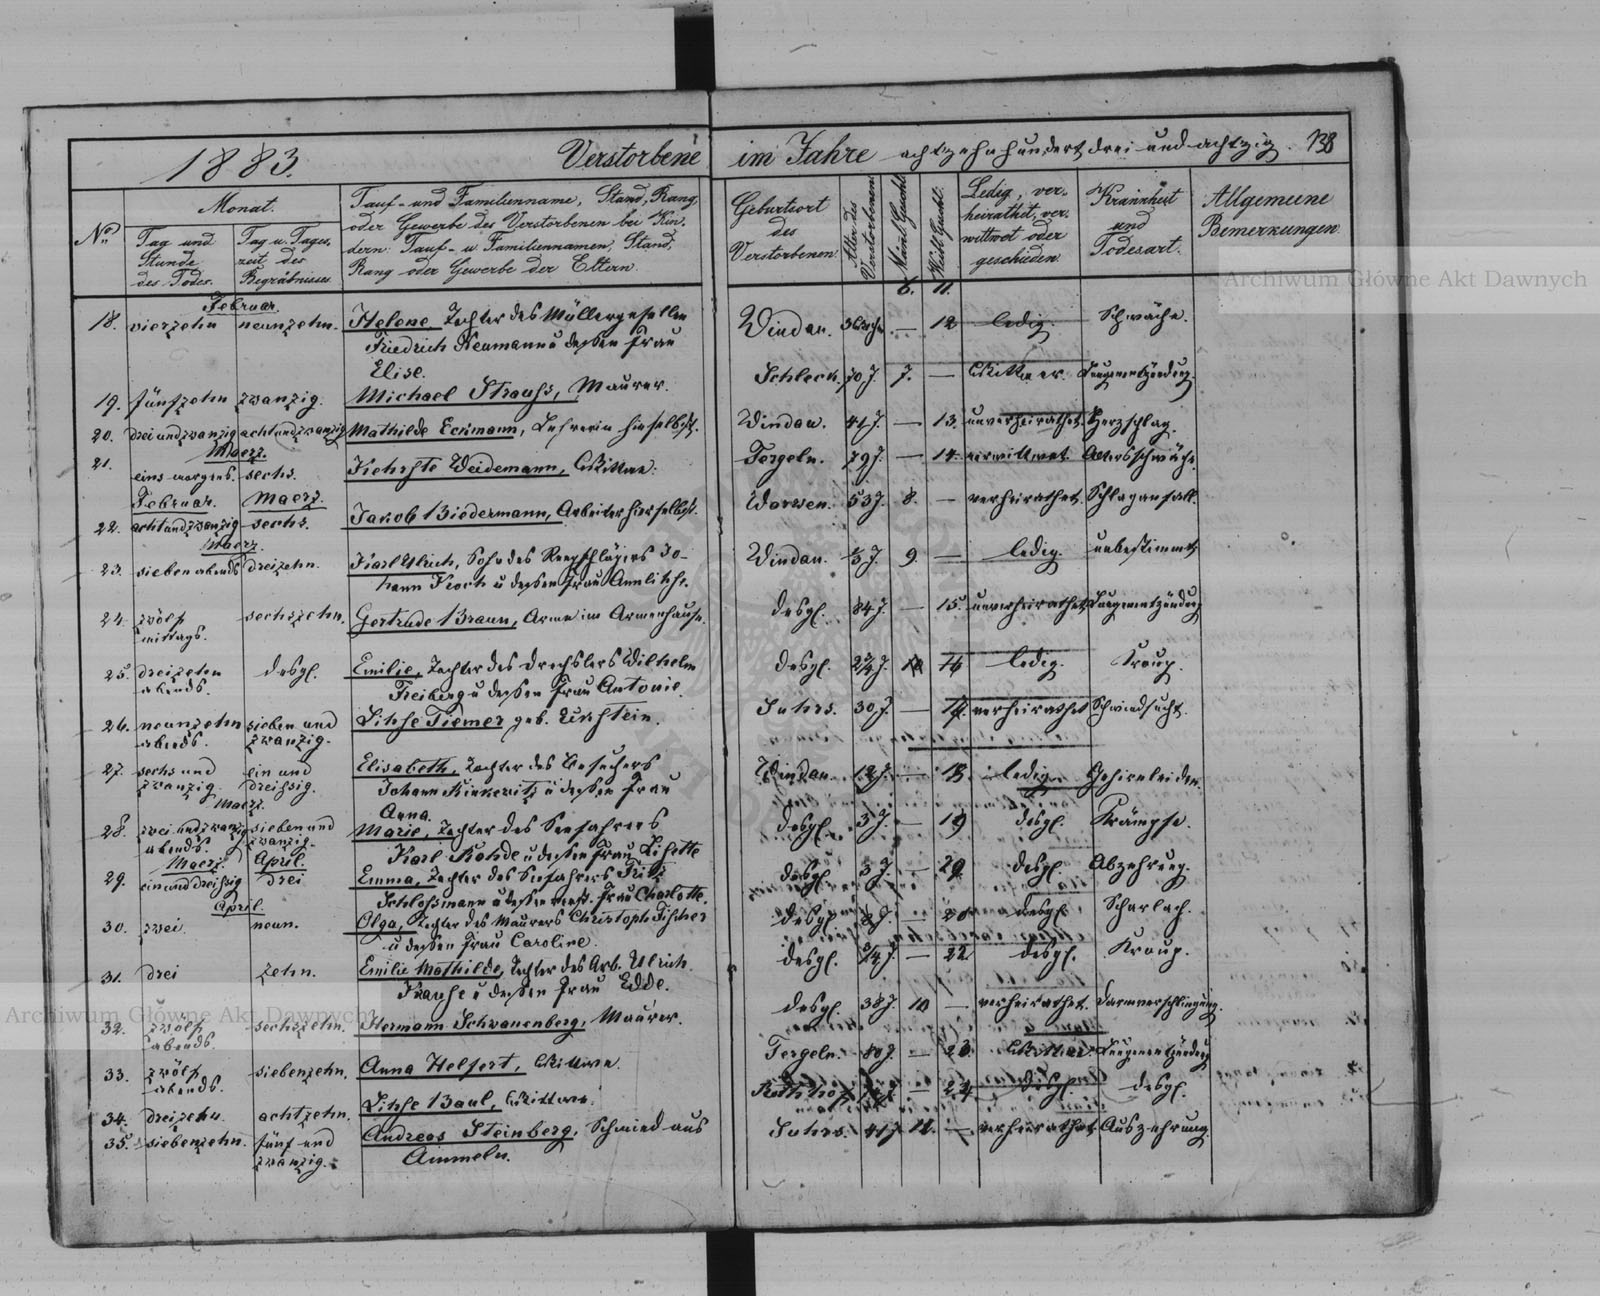 1883. Verstorbene im Jahre achtzehnhundert drei und achtzig. 138
No.
Monat.
Tag und
Stunde
des Todes.
Tag u. Tages-
zeit des
Begräbnisses
Tauf- und Familienname, Stand, Rang
oder Gewerbe des Verstorbenen bei Kin-
dern: Tauf- u Familiennamen, Stand,
Rang oder Gewerbe der Eltern.
Geburtsort
des
Verstorbenen.
Alter des
Verstorbenen
Männl. Geschl.
Weibl. Geschl.
Ledig, ver-
heirathet, ver-
wittwet oder
geschieden
Krankheit
und
Todesart.
Allgemeine
Bemerkungen
6. 11.
Februar.
18. vierzehn neunzehn. Helene, Tochter des Müllergesellen Windau. 12 ledig. Schwäche.
Friedrich Neumann u dessen Frau
Elise.
19. fünfzehn zwanzig. Michael Strauss, Maurer. Schleck. 70 J. 7. — Wittwer. Lungenentzündung.
20. drei und zwanzig acht und zwanzig Mathilde Eckmann, Lehrerin hieselbst. Windau. 41 J. — 13. unverheirathet. Herzschlag.
Maerz.
21. eins morgens. sechs. Weidemann, Wittwe. Tergeln. 79 J. — 14. verwittwet. Altersschwäche.
Februar. Maerz.
22. acht und zwanzig sechs. Jakob Biedermann, Arbeiter hierselbst. Warwen. 53 J. 8. — verheirathet. Schlaganfall.
Maerz.
23. sieben abends dreizehn. Karl Ulrich, Sohn des Reepschlägers Jo- Windau. 9. — ledig. unbestimmt
hann Koch u dessen Frau
24. zwölf sechszehn. Gertrude Braun, Arme im Armenhause. desgl. 84 J. — 15. unverheirathet. Lungenentzündung
mittags.
25. dreizehn desgl. Emilie, Tochter des Drechslers Wilhelm desgl. 16 ledig. Kroup.
abends. Freiberg u dessen Frau Antonie.
26. neunzehn sieben und Lihse Tiemer geb. Suhrs. 30 J. — 17. verheirathet Schwindsucht.
abends. zwanzig.
27. sechs und ein und Elisabeth, Tochter des Besuchers Windau. 12 J. — 18. ledig. Gehirnleiden.
zwanzig dreissig. Johann u dessen Frau
Maerz. Anna.
28. zwei und zwanzig sieben und Marie, Tochter des Seefahrers desgl. 3 J. — 19 desgl. Krämpfe.
abends. zwanzig. Karl Rohde u dessen Frau Lisette
Maerz. April.
29. ein und dreissig drei Emma, Tochter des Seefahrers Fritz desgl. 3 J. — 20. desgl. Abzehrung.
April. Schlossmann u dessen Frau Charlotte.
30. zwei. neun. Olga, Tochter des Maurers Christoph Fischer desgl. — desgl. Scharlach.
u dessen Frau Caroline.
31. drei zehn. Emilie Mathilde, Tochter des Arb. Ulrich desgl. — 22 desgl. Kroup.
Krause u dessen Frau Edde.
32. zwölf sechszehn. Hermann Schwanenberg, Maurer. desgl. 38 J. 10 — verheirathet. Darmverschlingung.
abends.
33. zwölf siebenzehn. Anna Helfert, Wittwe. Tergeln. 80 J. — 23. Wittwe. Lungenentzündung
abends.
34. dreizehn achtzehn. Lihse Baul, Wittwe. — 24 desgl. desgl.
35. siebenzehn. fünf und Andreas Steinberg, Schmied aus Suhrs. 41 J. 11. — verheirathet Auszehrung.
zwanzig. Ammeln.
Archiwum Główne Akt Dawnych
Archiwum Główne Akt Dawnych